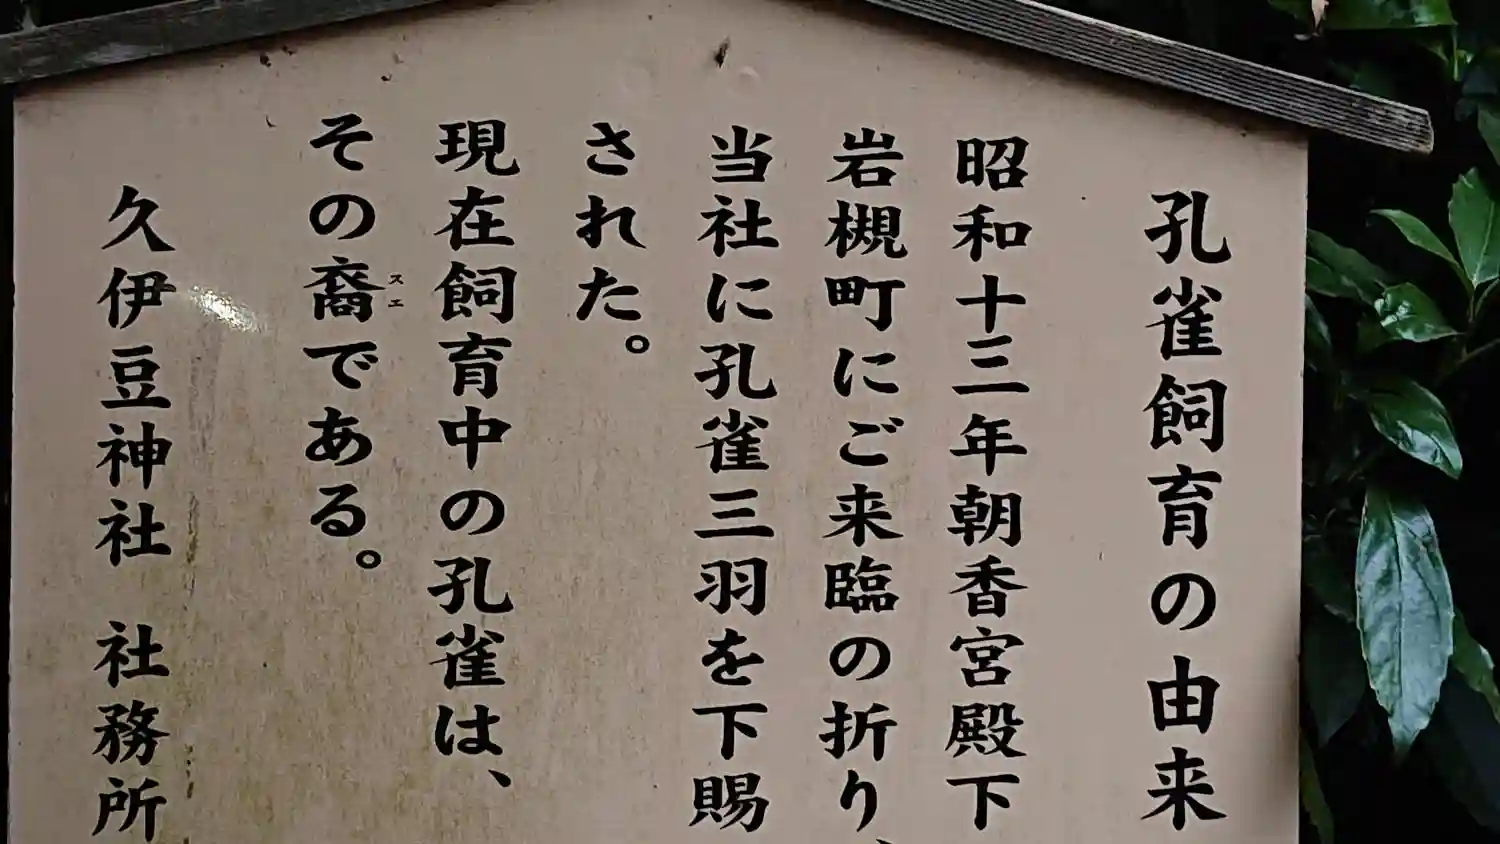 孔雀飼育の由来
昭和十三年朝香宮殿下
岩槻町にご来臨の折り、
当社に孔雀三羽を下賜
された。
現在飼育中の孔雀は、
その裔である。
スエ
久伊豆神社 社務所